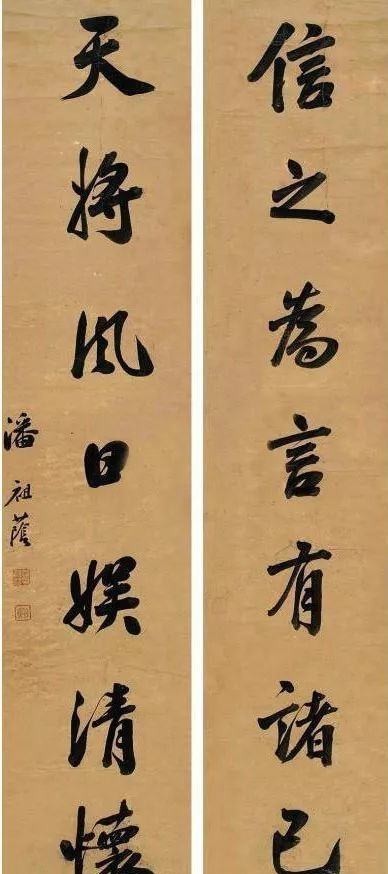 信之為言有諸己
天將風日娯清懷
潘祖蔭